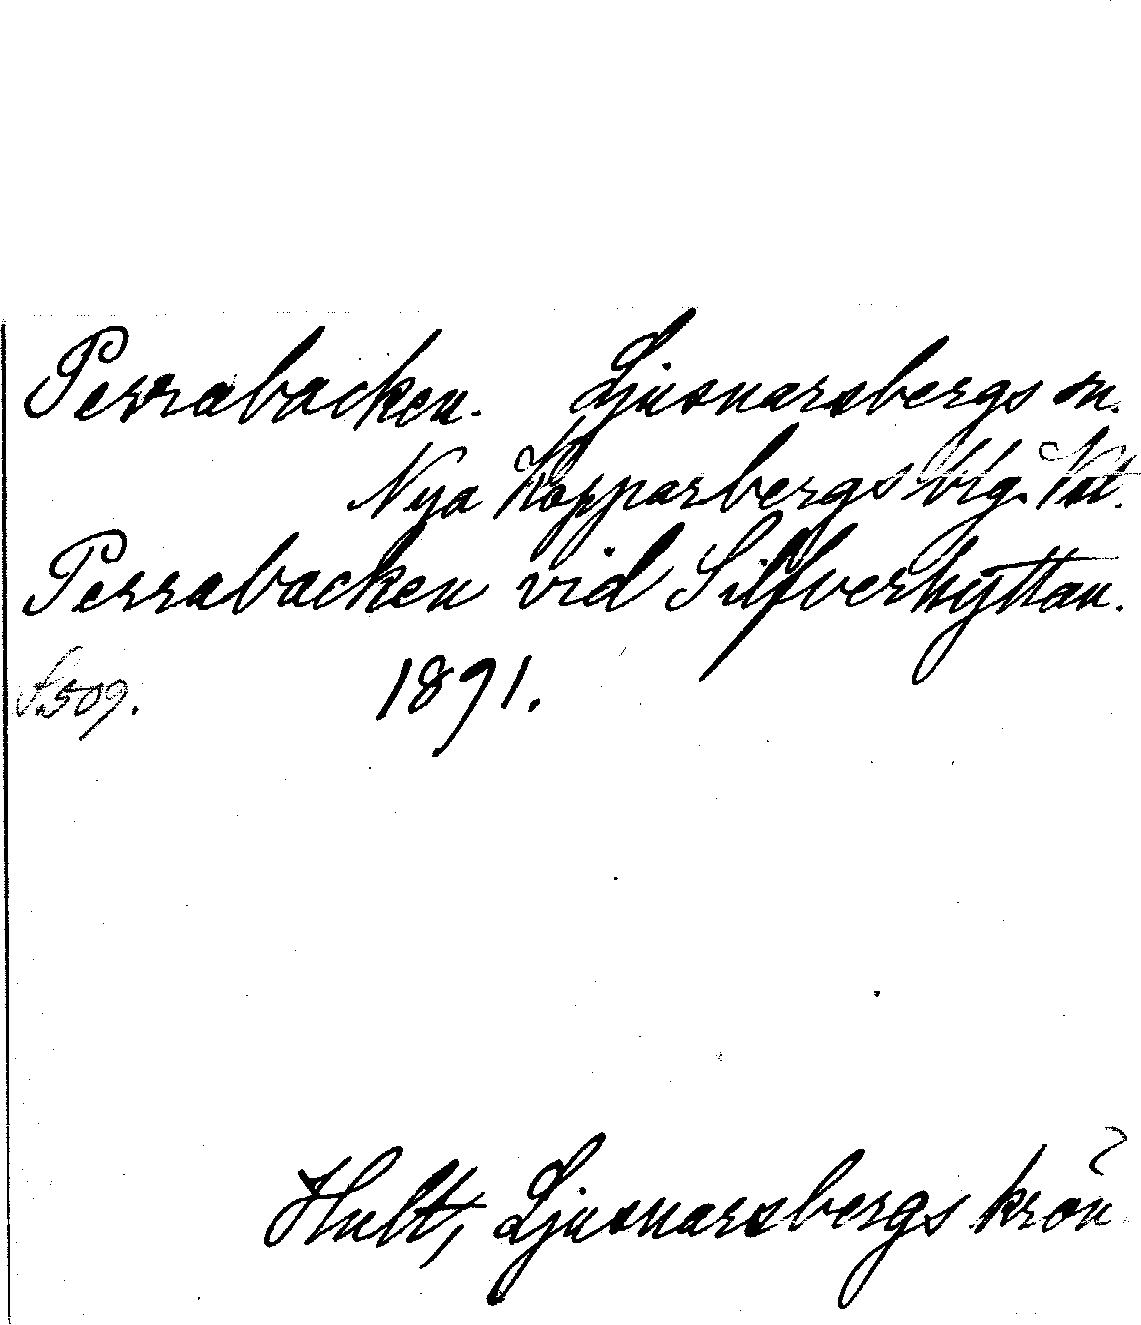 Perrabacken. Ljusnarsbergs sn.
Nya Kopparbergs blg. Vtl.
Perrabacken vid Silfverhyttan.
S. 509. 1891.
Hult, Ljusnarsbergs krön